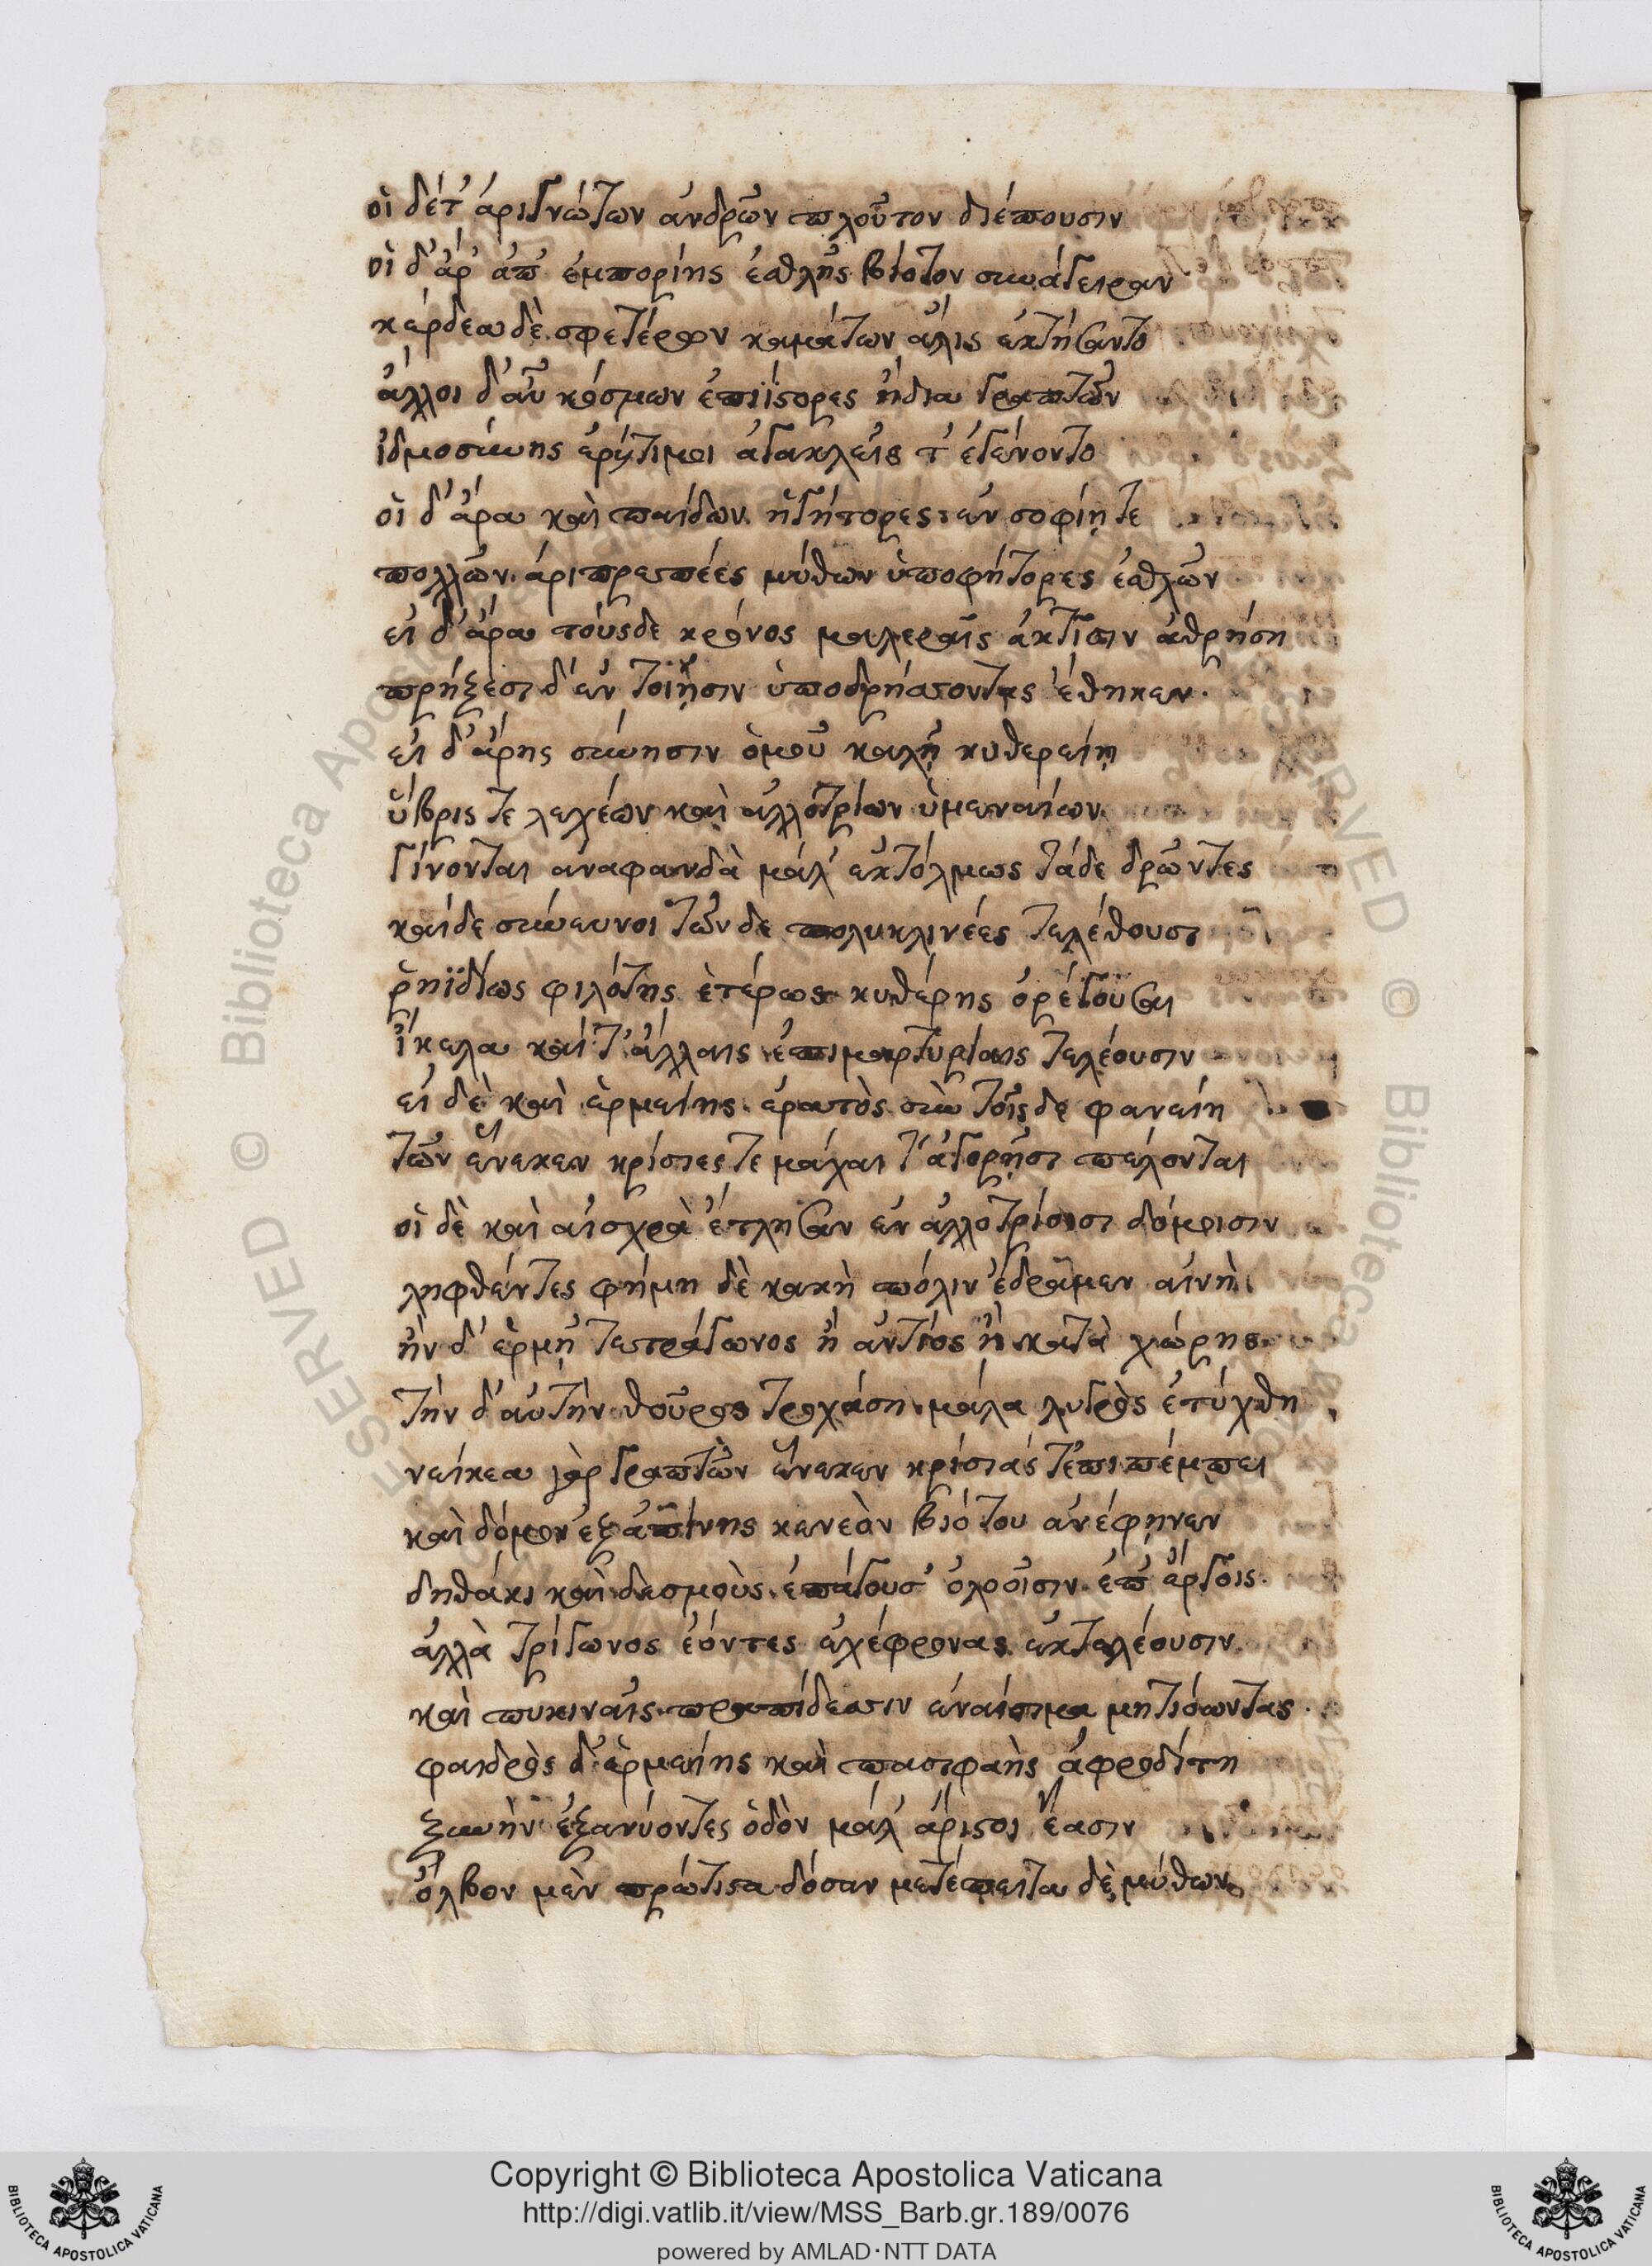 οἱ δέτ' ἀριγνώτων ἀνδρῶν πλοῦτον διέπουσιν
οἱ δ' ἄρ' ἀπ' ἐμπορίης ἐσθλῆς βίοτον συνάγειραν
κέρδεα δὲ σφετέρων καμάτων ἅλις ἐκτήσαντο
ἄλλοι δ' αὖ κόσμων ἐπιίστορες ἠδὲ γραπτῶν
ἰδμοσύνης ἐρίτιμοι ἀγακλεεῖς τ' ἐγένοντο
οἱ δ' ἄρα καὶ παίδων ἡγήτορες ἐν σοφίῃ τε
πολλῶν ἀριπρεπέες μύθων ὑποφήτορες ἐσθλῶν
εἰ δ' ἄρα τούσδε κρόνος μαλεραῖς ἀκτῖσιν ἀθρήση
πρήξεσι δ' ἐν τοίῃσιν ὑποδρήσσοντας ἔθηκεν.
εἰ δ' ἄρης σύνησιν ὁμοῦ καλῇ κυθερείῃ
ὕβρις τε λεχέων καὶ ἀλλοτρίων ὑμεναίων
γίνονται ἀναφανδὰ μάλ' ἐκτόλμως τάδε δρῶντες
καίδε σύνευνοι τῶν δε πολυκλινέες τελέθουσι
ῥηϊδίως φιλότης ἑτέρως κυθέρης ὀρέγουσαι
ἴκελα καί τ' ἄλλαις ἐπιμαρτυρίαις τελέουσιν
εἰ δὲ καὶ ἑρμείης ἐρατὸς σὺν τοῖς δε φανείη
τῶν εἵνεκεν κρίσιες τε μάχαι τ' ἀγορῇσι πέλονται
οἱ δὲ καὶ αἰσχρὰ ἔτλησαν ἐν ἀλλοτρίοισι δόμοισιν
ληφθέντες φήμη δὲ κακὴ πόλιν ἔδραμεν αἰνὴ
ἢν δ' ἑρμῇ τετράγωνος ἢ ἀντίος ἢ κατὰ χώρης
τὴν δ' αὐτὴν θοῦρος τροχάση μάλα λυγρὸς ἐτύχθη
νείκεα γὰρ γραπτῶν εἵνεκεν κρίσιάς τ' ἐπιπέμπει
καὶ δόμον ἐξαπίνης κενεὸν βιότου ἀνέφηνεν
δηθάκι καὶ δεσμοὺς ἐπάγουσ' ὀλοοῖσιν ἐπ' ἔργοις.
ἀλλὰ τρίγωνος ἐόντες ἐχέφρονας ἐκτελέουσιν
καὶ πυκιναῖς πραπίδεσσιν ἐναίσιμα μητιόωντας.
φαιδρὸς δ' ἑρμείης καὶ πασιφαὴς ἀφροδίτη
ξυνὴν ἐξανύοντες ὁδὸν μάλ' ἄριστοι ἔασιν
ὄλβον μὲν πρώτιστα δόσαν μετέπειτα δὲ μύθων
Copyright © Biblioteca Apostolica Vaticana
http://digi.vatlib.it/view/MSS_Barb.gr.189/0076
powered by AMLAD·NTT DATA